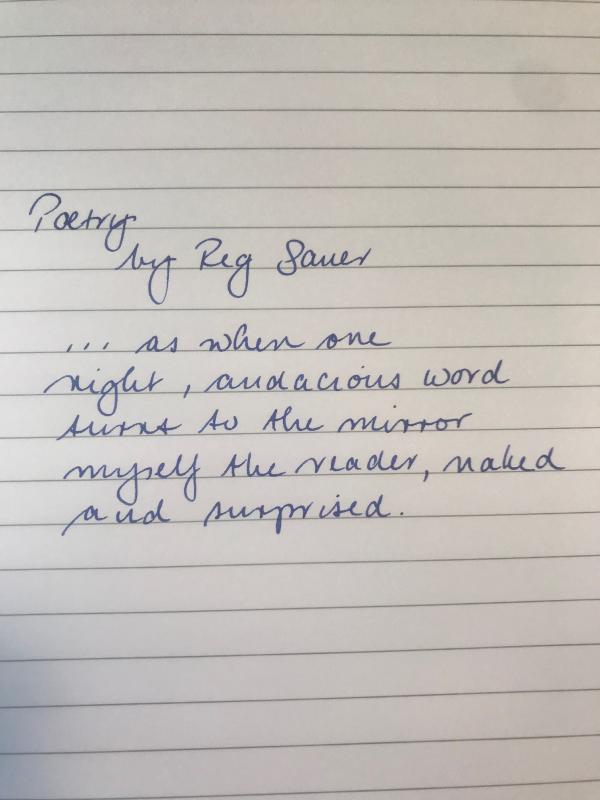 Poetry
by Reg Saner
... as when one
right, audacious word
turns to the mirror
myself the reader, naked
and surprised.